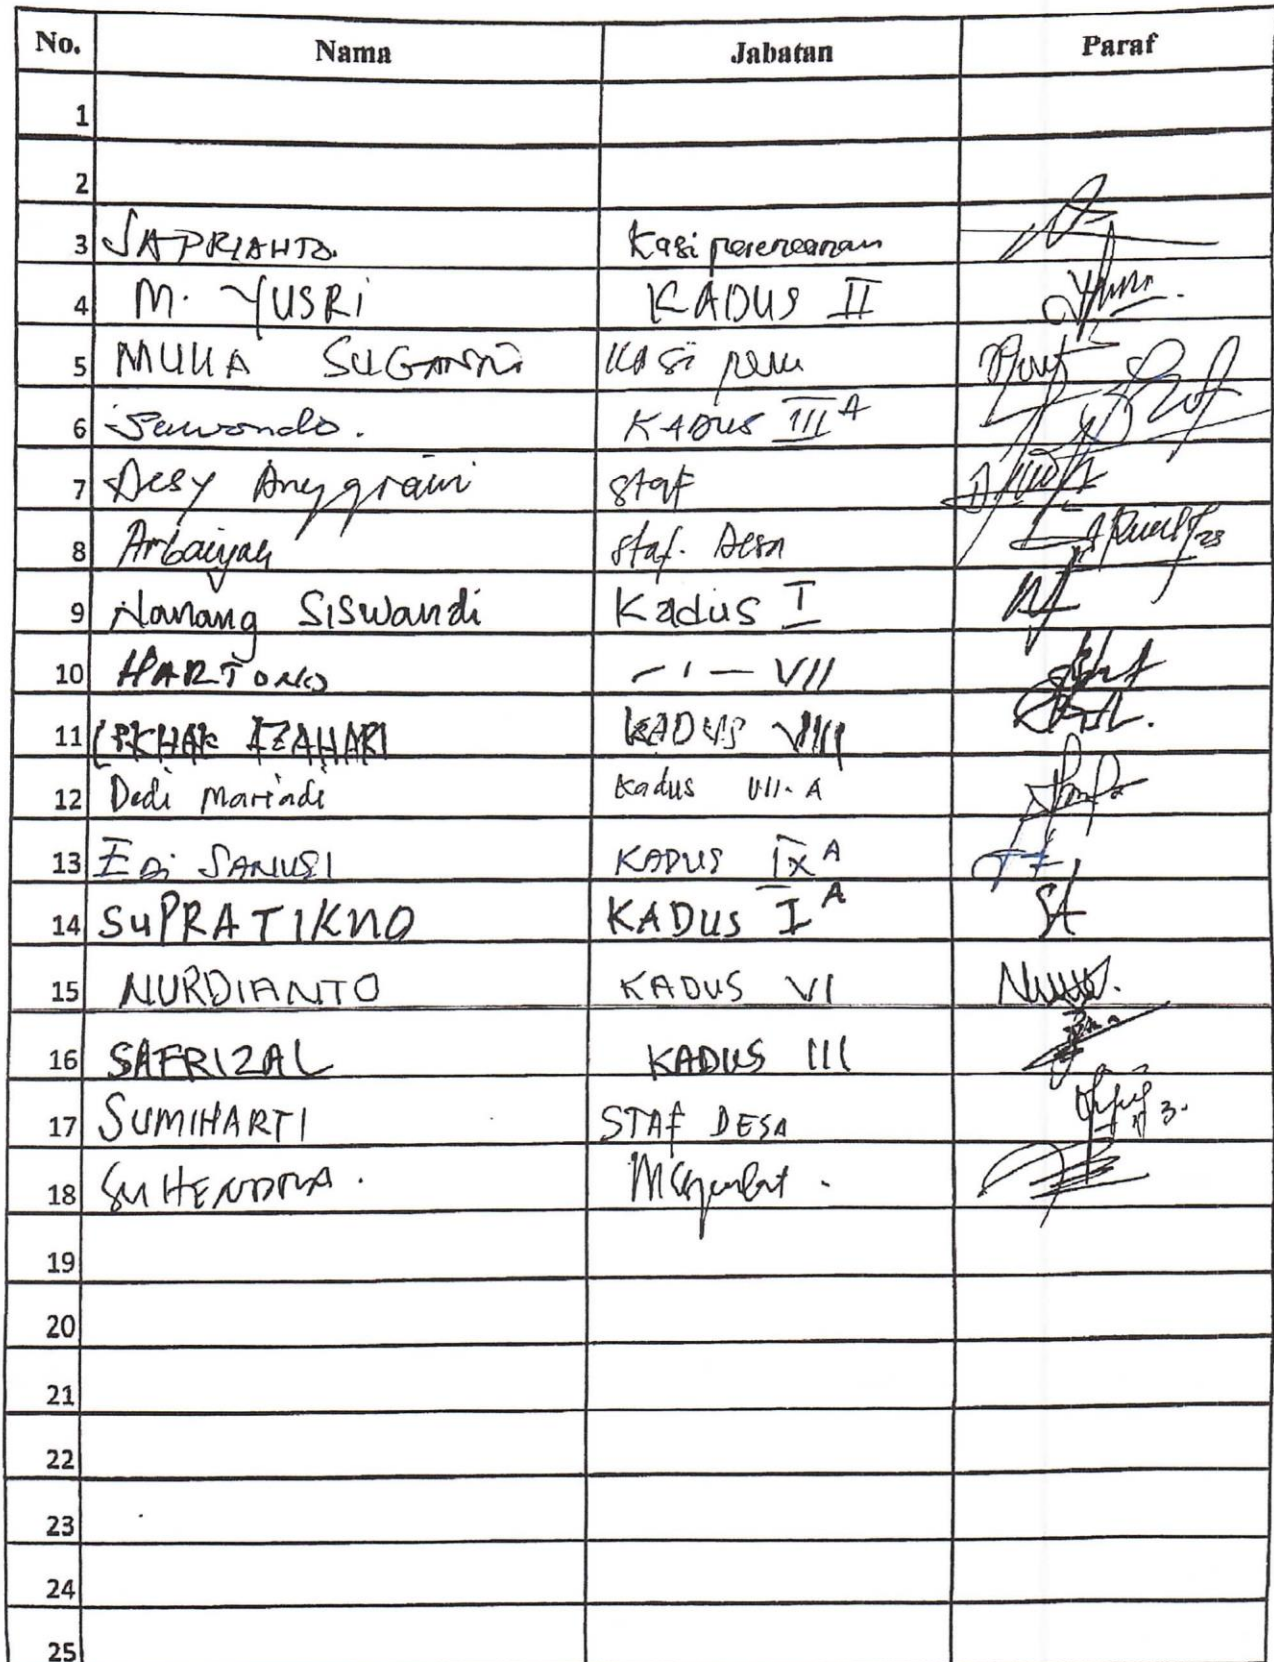 No. Nama Jabatan Paraf
1
2
3 SAPRIANTO. Kasi perencanaan
4 M. YUSRi KADUS II
5 SUGANDI KASi
6 Suwondo. KADUS III A
7 Desy Anggraini staf
8 Arbaiyah staf. Desa
9 Nanang SiSwandi Kadus I
10 HARTONO - ı - VII
11 AZAHARI KADUS VIII
12 Dedi Mariadi Kadus VII. A
13 EDi SANUSI KADUS IX A
14 SUPRATIKNO KADUS I A
15 NURDIANTO KADUS VI
16 SAFRIZAL KADUS III
17 SUMIHARTI STAF DESA
18 SUHENDRA.
19
20
21
22
23
24
25